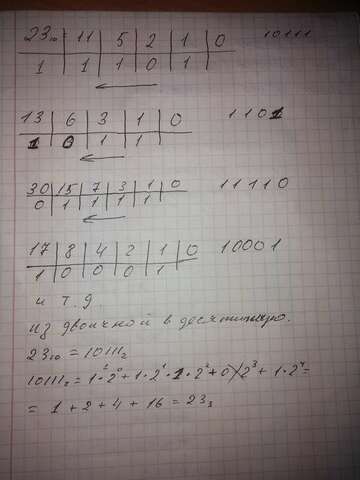 23₁₀ = 11 | 5 | 2 | 1 | 0 10111
1 | 1 | 1 | 0 | 1
13 | 6 | 3 | 1 | 0 1101
1 | 0 | 1 | 1
30 | 15 | 7 | 3 | 1 | 0 11110
0 | 1 | 1 | 1 | 1
17 | 8 | 4 | 2 | 1 | 0 10001
1 | 0 | 0 | 0 | 1
и т.д.
из двоичной в десятичную.
23₁₀ = 10111₂
10111₂ = 1·2⁰ + 1·2¹ · 1·2² + 0·2³ + 1·2⁴ =
= 1 + 2 + 4 + 16 = 23₃